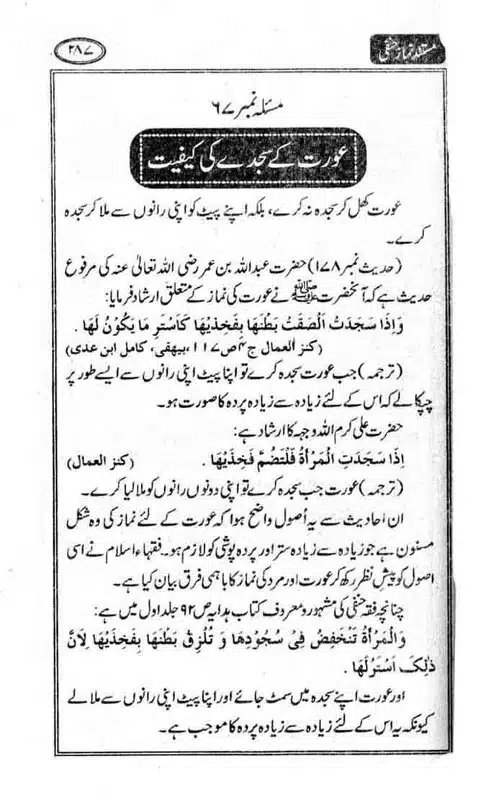 مستند نماز حنفی
۲۸۷
مسئلہ نمبر ۶۷
عورت کے سجدے کی کیفیت
عورت کھل کر سجدہ نہ کرے، بلکہ اپنے پیٹ کو اپنی رانوں سے ملا کر سجدہ
کرے۔
(حدیث نمبر ۱۷۸) حضرت عبداللہ بن عمر رضی اللہ تعالیٰ عنہ کی مرفوع
حدیث ہے کہ آنحضرت ﷺ نے عورت کی نماز کے متعلق ارشاد فرمایا:
وَاِذَا سَجَدَتْ اَلْصَقَتْ بَطْنَهَا بِفَخِذَيْهَا كَاَسْتَرِ مَا يَكُوْنُ لَهَا .
(کنز العمال ج ۴ ص ۱۱۷، بیهقی، کامل ابن عدی)
(ترجمہ) جب عورت سجدہ کرے تو اپنا پیٹ اپنی رانوں سے ایسے طور پر
چپکا لے کہ اس کے لئے زیادہ سے زیادہ پردہ کا صورت ہو۔
حضرت علی کرم اللہ وجہہ کا ارشاد ہے:
اِذَا سَجَدَتِ الْمَرْاَةُ فَلْتَضُمَّ فَخِذَيْهَا . (کنز العمال)
(ترجمہ) عورت جب سجدہ کرے تو اپنی دونوں رانوں کو ملا لیا کرے۔
ان احادیث سے یہ اُصول واضح ہوا کہ عورت کے لئے نماز کی وہ شکل
مسنون ہے جو زیادہ سے زیادہ ستر اور پردہ پوشی کو لازم ہو۔ فقہاء اسلام نے اسی
اصول کو پیشِ نظر رکھ کر عورت اور مرد کی نماز کا باہمی فرق بیان کیا ہے۔
چنانچہ فقہ حنفی کی مشہور و معروف کتاب ہدایہ ص ۹۲ جلد اول میں ہے:
وَالْمَرْاَةُ تَنْخَفِضُ فِىْ سُجُوْدِهَا وَ تُلْزِقُ بَطْنَهَا بِفَخِذَيْهَا لِاَنَّ
ذٰلِكَ اَسْتَرُ لَهَا .
اور عورت اپنے سجدہ میں سمٹ جائے اور اپنا پیٹ اپنی رانوں سے ملا لے
کیونکہ یہ اس کے لئے زیادہ سے زیادہ پردہ کا موجب ہے۔